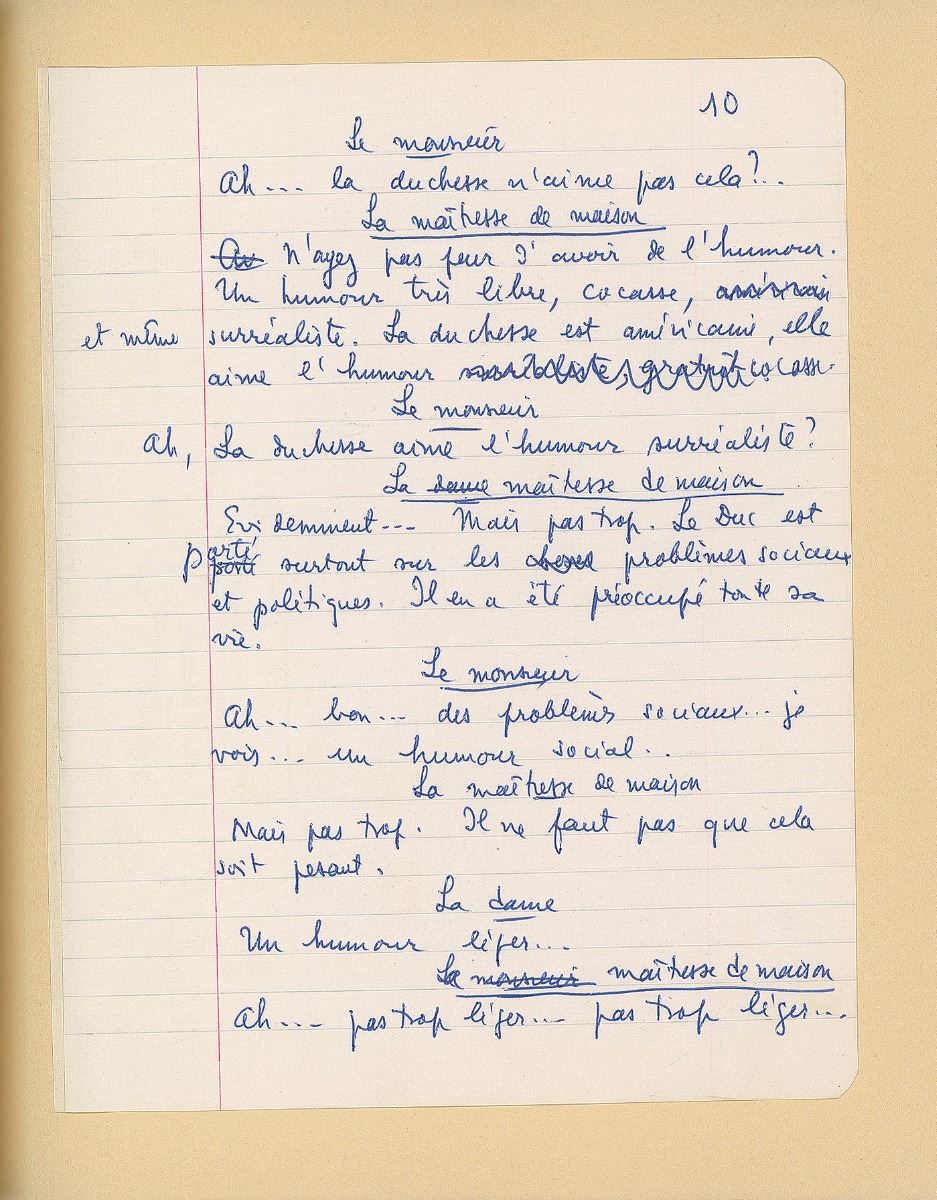 10
Le monsieur
Ah... la duchesse n'aime pas cela?..
La maîtresse de maison
N'ayez pas peur d'avoir de l'humour.
Un humour très libre, cocasse,
et même surréaliste. La duchesse est américaine, elle
aime l'humour cocasse.
Le monsieur
Ah, La duchesse aime l'humour surréaliste?
La dame maîtresse de maison
Evidemment--- Mais pas trop. Le Duc est
porté surtout sur les choses problèmes sociaux
et politiques. Il en a été préoccupé toute sa
vie.
Le monsieur
Ah... bon... des problèmes sociaux... je
vois... un humour social..
La maîtresse de maison
Mais pas trop. Il ne faut pas que cela
soit pesant.
La dame
Un humour léger...
Le monsieur maîtresse de maison
Ah... pas trop léger... pas trop léger...